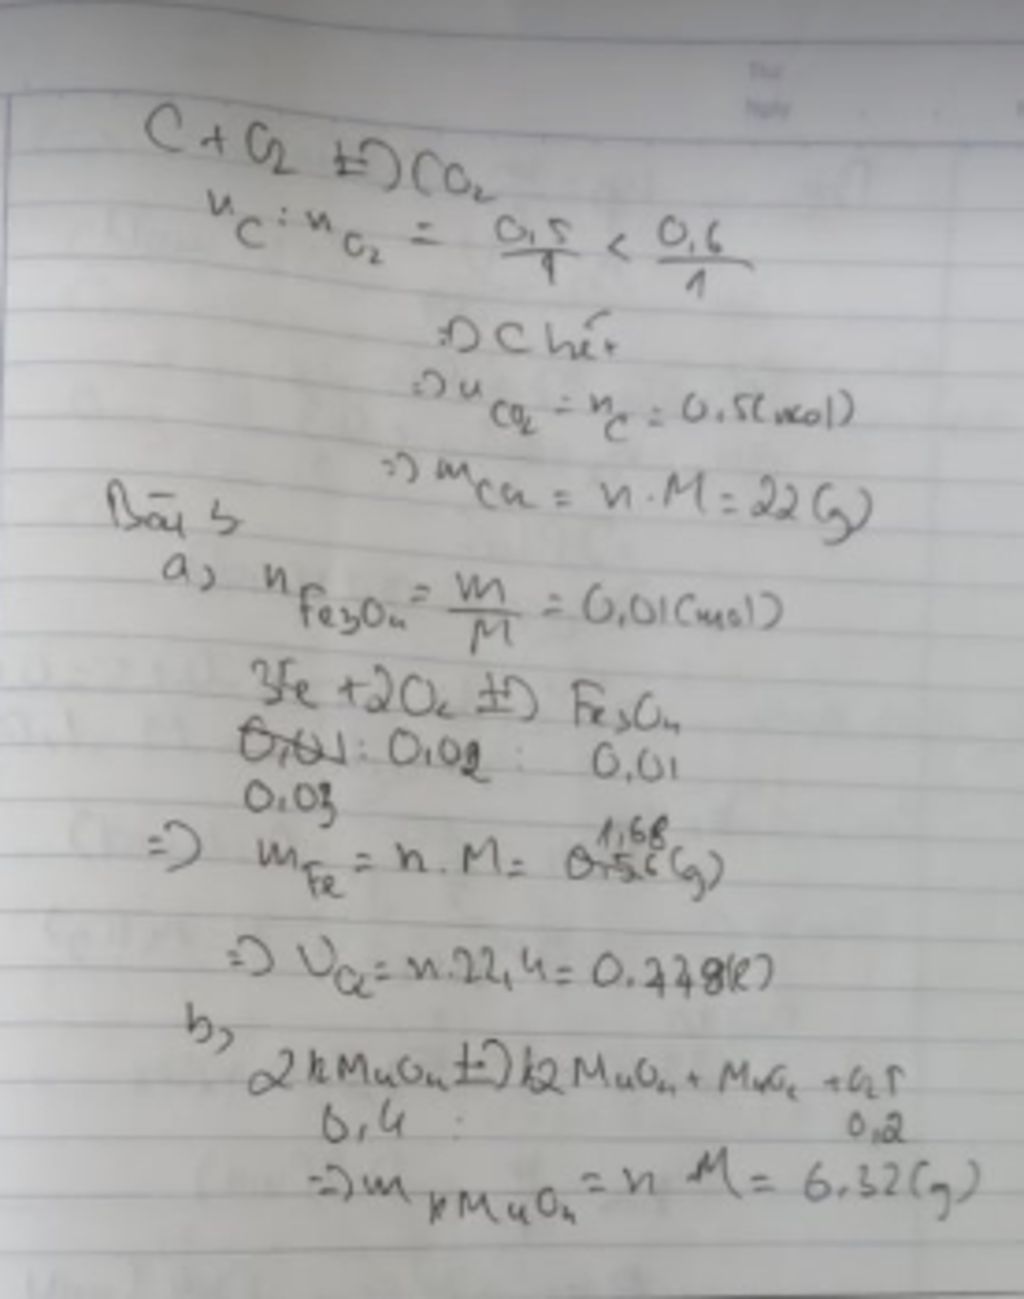 C + O₂ t→) CO₂
n_C : n_O₂ = 0,5/1 < 0,6/1
=) C hết
=) n_CO₂ = n_C = 0.5(mol)
=) m_CO₂ = n.M = 22(g)
Bài 5
a, n_Fe₃O₄ = m/M = 0,01(mol)
3Fe + 2O₂ t→) Fe₃O₄
0,01 : 0,02 : 0,01
0.03
=) m_Fe = n.M = 0,56 1,68 (g)
=) V_O₂ = n.22,4 = 0.448(l)
b,
2KMnO₄ t→) K2MnO₄ + MnO₂ + O₂↑
0,4 : 0,2
=) m_KMnO₄ = n M = 6.32(g)